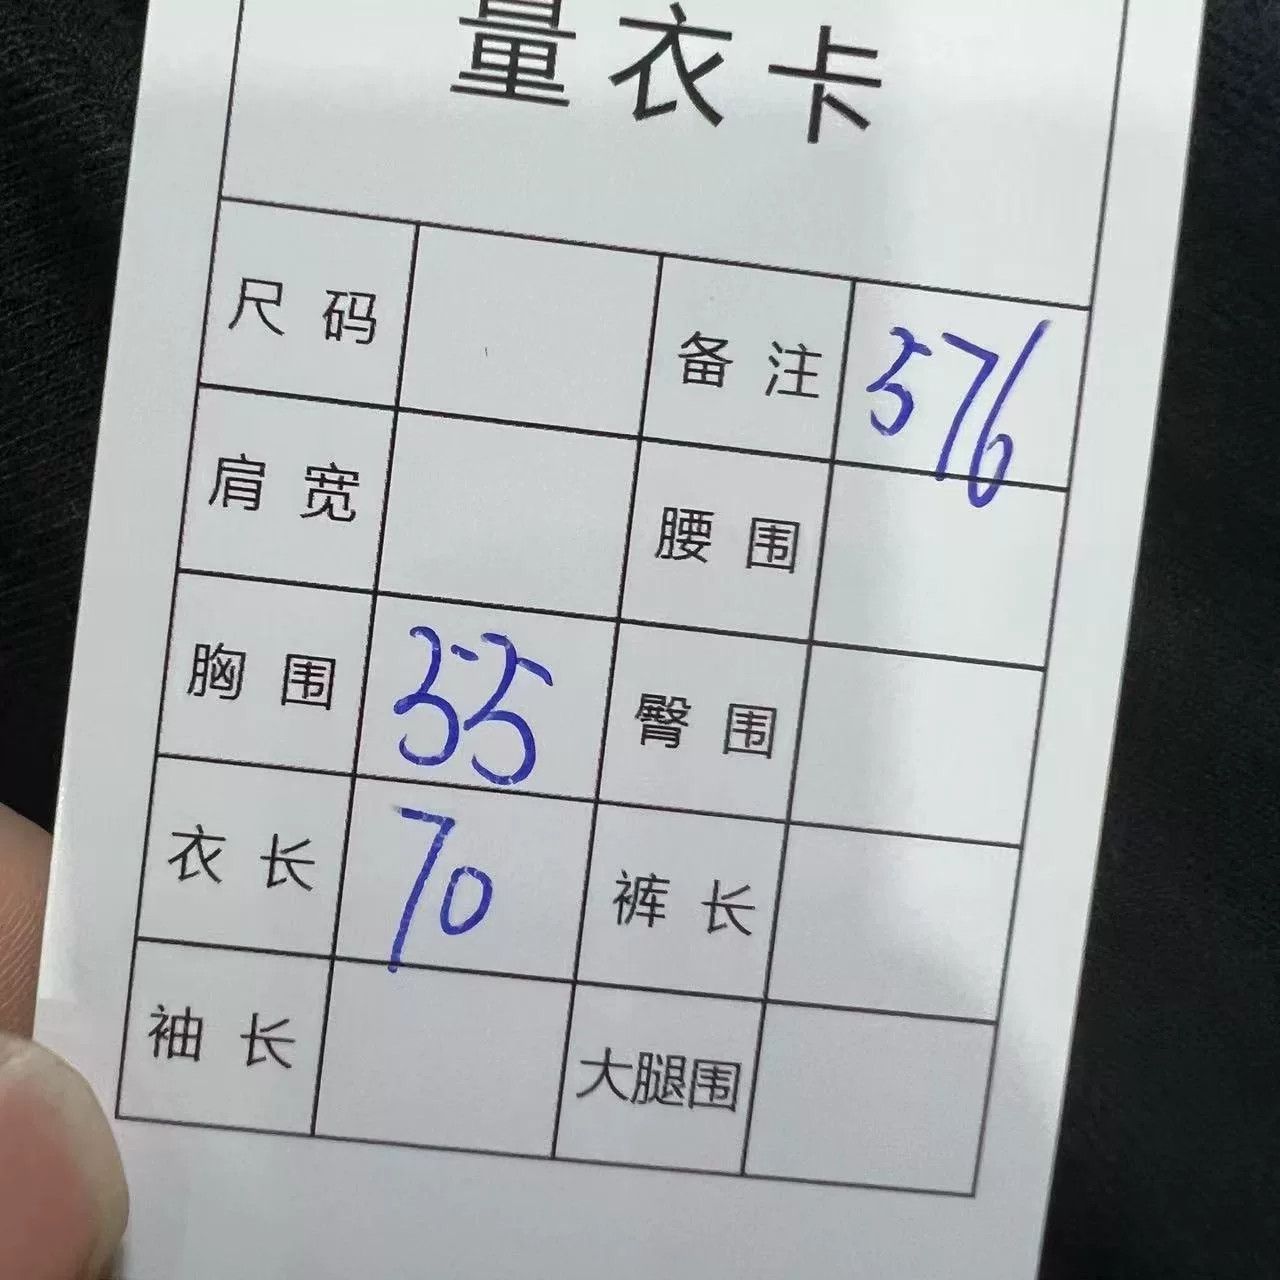 量衣卡
尺码 备注 576
肩宽 腰围
胸围 55 臀围
衣长 70 裤长
袖长 大腿围